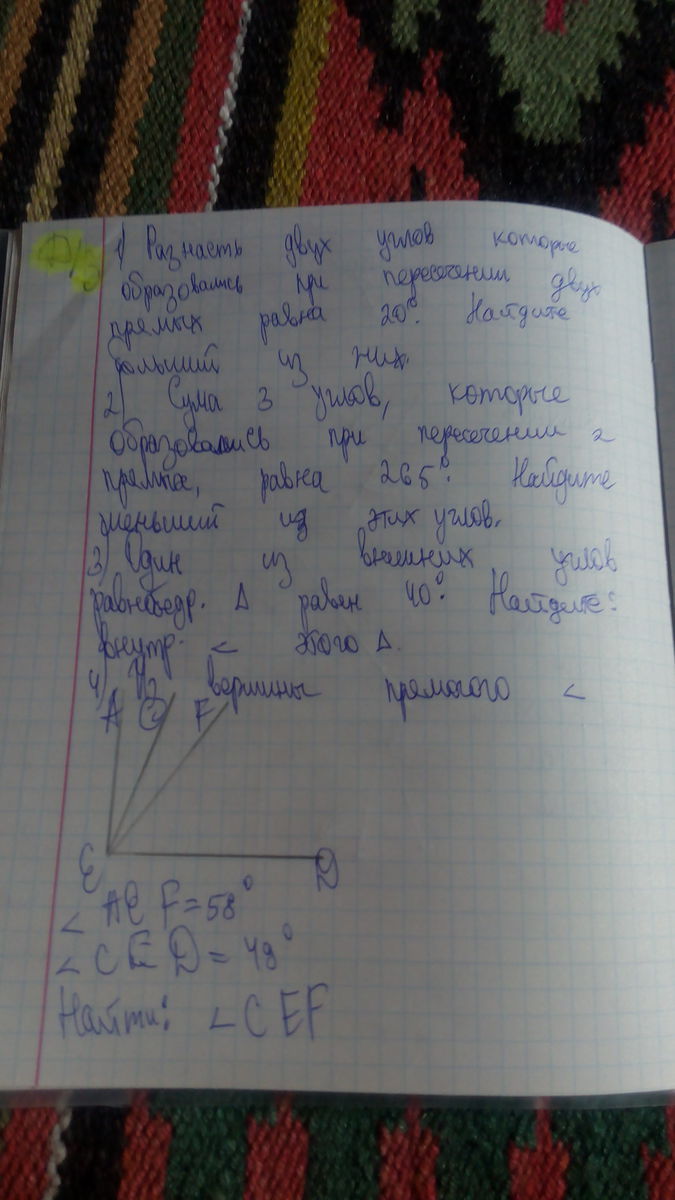 Д/З
1) Разнасть двух углов которые
образовались при пересечении двух
прямых равна 20°. Найдите
больший из них.
2) Сума 3 углов, которые
образовались при пересечении 2
прямых, равна 265°. Найдите
меньший из этих углов.
3) Один из внешних углов
равнобедр. Δ равен 40°. Найдите:
внутр. < этого Δ.
4) Из вершины прямого <
A C F
E D
< AEF = 58°
< CED = 49°
Найти: < CEF